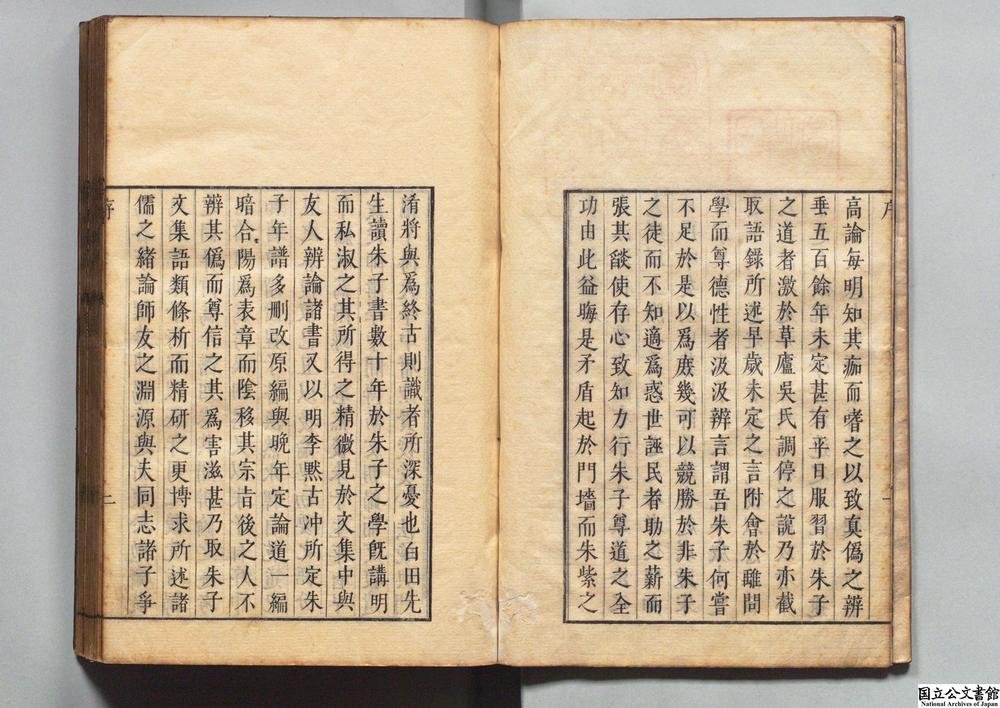 高論每明知其痂而嗜之以致真偽之辨
垂五百餘年未定甚有平日服習於朱子
之道者激於草廬吳氏調停之說乃亦截
取語錄所述早歲未定之言附會於離問
學而尊德性者汲汲辨言謂吾朱子何嘗
不足於是以為庻幾可以競勝於非朱子
之徒而不知適為惑世誣民者助之薪而
張其燄使存心致知力行朱子尊道之全
功由此益晦是矛盾起於門墻而朱紫之
淆將與爲終古則識者所深憂也白田先
生讀朱子書數十年於朱子之學旣講明
而私淑之其所得之精微見於文集中與
友人辨論諸書又以明李黙古冲所定朱
子年譜多刪改原編與晚年定論道一編
暗合陽爲表章而陰移其宗㫖後之人不
辨其僞而尊信之其爲害滋甚乃取朱子
文集語類條析而精研之更博求所述諸
儒之緒論師友之淵源與夫同志諸子爭
序
二
国立公文書館
National Archives of Japan